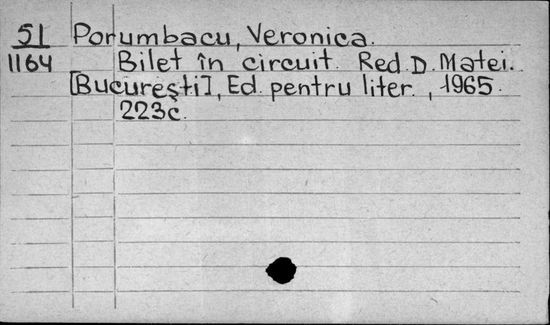 51 Porumbacu, Veronica.
1164 Bilet în circuit. Red. D. Matei.
[București], Ed. pentru liter., 1965.
223 c.